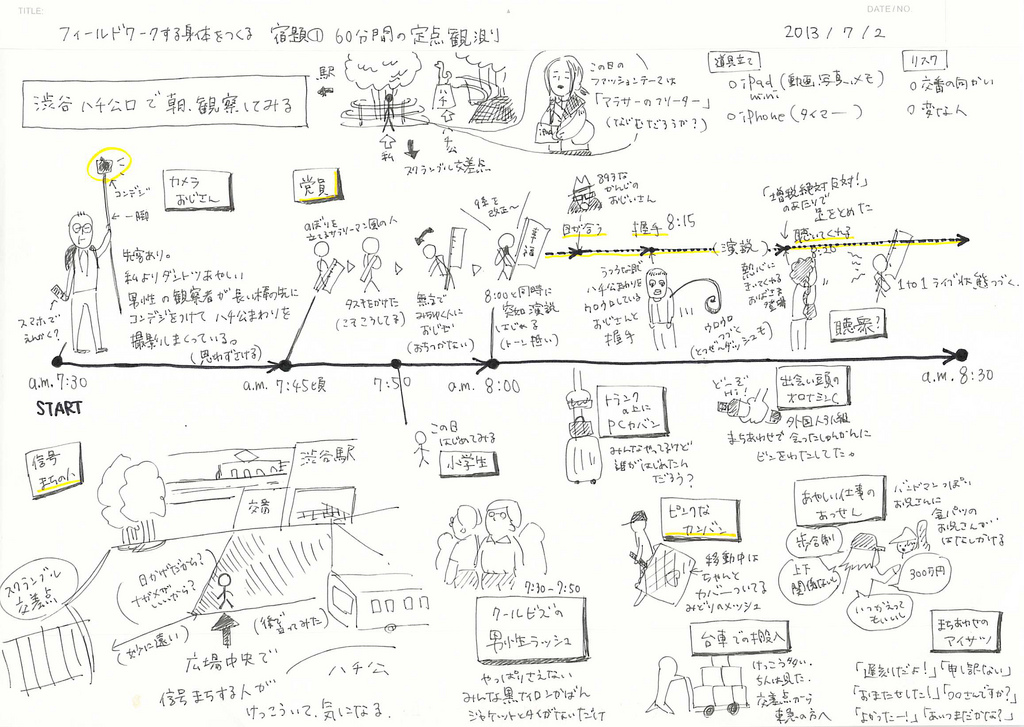 TITLE:
DATE/NO
フィールドワークする身体をつくる 宿題① 60分間の定点観測
2013/7/2
渋谷ハチ公口で朝、観察してみる
駅
ハチ公
私
スクランブル交差点
この日の
ファッションテーマは
「アラサーのフリーター」
(なぜだろうか?)
道具立て
○iPad mini (動画、写真、メモ)
○iPhone (タイマー)
リスク
○交番の向かい
○変な人
コンデジ
一脚
カメラ
おじさん
先客あり。
私よりダントツあやしい
男性の観察者が長い棒の先に
コンデジをつけてハチ公まわりを
撮影しまくっている。
(思わずさける)
スマホで
党員
のぼりを
立てるサラリーマン風の人
タスキをかけた
無言で
(おちつかない)
9条を
改正〜
8:00と同時に
突如演説
はじめる
(トーン低い)
893な
かんじの
おじいさん
目が合う
握手 8:15
(演説)
ハチ公まわりを
ウロウロしている
おじさんと
握手
ウロウロ
「増税絶対反対!」
のあたりで
足をとめた
聴いてくれる
8:20
おばさま
登場
1 to 1 ライブ状態つづく。
聴衆?
a.m. 7:30
START
a.m. 7:45頃
7:50
a.m. 8:00
a.m. 8:30
この日
はじめてみる
小学生
トランク
の上に
PCカバン
みんなやってるけど
誰がはじめたん
だろう?
どーぞ
Hi!
出会い頭の
オロナミンC
外国人3人組
まちあわせで会ったしゅんかんに
ビンをわたしてた。
信号
まちの人
渋谷駅
交番
スクランブル
交差点
日かげだから?
ナナメがいいから?
(妙に遠い)
(後 言ってみた)
広場中央で
信号まちする人が
けっこういて、気になる。
ハチ公
7:30-7:50
クールビズの
男性ラッシュ
やっぱりさえない
みんな黒ナイロンかばん
ジャケットとタイがないだけ
ピンクな
カンバン
移動中は
ちゃんと
カバーついてる
みどりのメッシュ
あやしい仕事の
あっせん
バンドマンっぽい
お兄さんに
金パツの
お兄さんが
はなしかける
歩合制
上下
関係ないし
300万円
いつかえっても
いいし
台車での搬入
けっこう多い。
5人は見た。
交差点から
東急の方へ
まちあわせの
アイサツ
「遅刻だよ!」「申し訳ない」
「おまたせした!」「○○さんですか?」
「よかったー!」「あいつまだかな?」